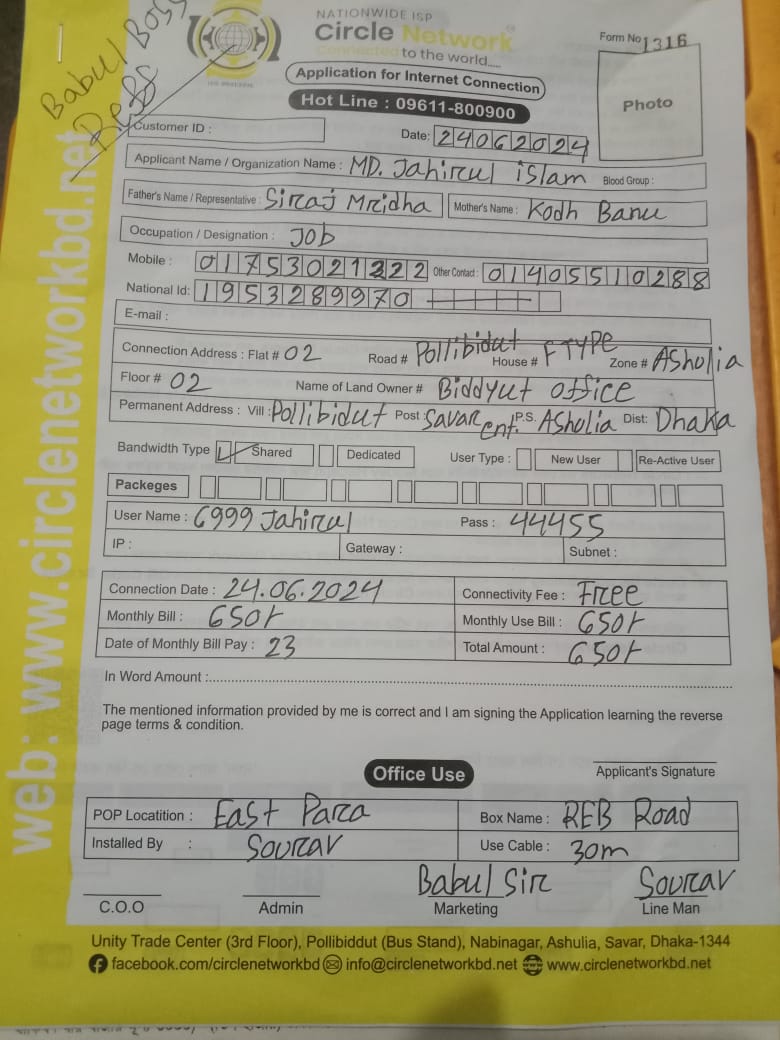 NATIONWIDE ISP
Circle Network
Connected to the world.....
Form No 1316
Babul Boss
Application for Internet Connection
Hot Line : 09611-800900
Photo
Customer ID :
Date: 24062024
Applicant Name / Organization Name : MD. Jahirul islam Blood Group :
Father's Name / Representative : Siraj Mridha Mother's Name : Kodh Banu
Occupation / Designation : Job
Mobile : 01753021322 Other Contact : 01405510288
National Id: 1953289970
E-mail :
Connection Address : Flat # 02 Road # Pollibidut House # F TYPE Zone # Ashulia
Floor # 02 Name of Land Owner # Biddyut office
Permanent Address : Vill : Pollibidut Post : Savar ent. P.S. Ashulia Dist: Dhaka
Bandwidth Type Shared Dedicated User Type : New User Re-Active User
Packeges
User Name : 6999 Jahirul Pass : 44455
IP : Gateway : Subnet :
Connection Date : 24.06.2024 Connectivity Fee : Free
Monthly Bill : 650/- Monthly Use Bill : 650/-
Date of Monthly Bill Pay : 23 Total Amount : 650/-
In Word Amount :
The mentioned information provided by me is correct and I am signing the Application learning the reverse
page terms & condition.
Applicant's Signature
Office Use
POP Locatition : East Para Box Name : REB Road
Installed By : Sourav Use Cable : 30m
Babul Sir Sourav
C.O.O Admin Marketing Line Man
Unity Trade Center (3rd Floor), Pollibiddut (Bus Stand), Nabinagar, Ashulia, Savar, Dhaka-1344
facebook.com/circlenetworkbd info@circlenetworkbd.net www.circlenetworkbd.net
web: www.circlenetworkbd.net